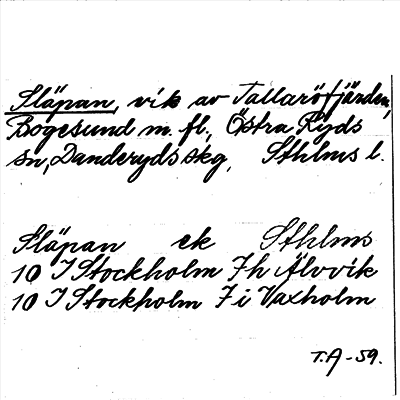 Släpan, vik av Tallaröfjärden,
Bogesund m. fl., Östra Ryds
sn, Danderyds skg, Sthlms l.
Släpan ek Sthlms
10 I Stockholm 7 h Älvvik
10 I Stockholm 7 i Vaxholm
T.A -59.